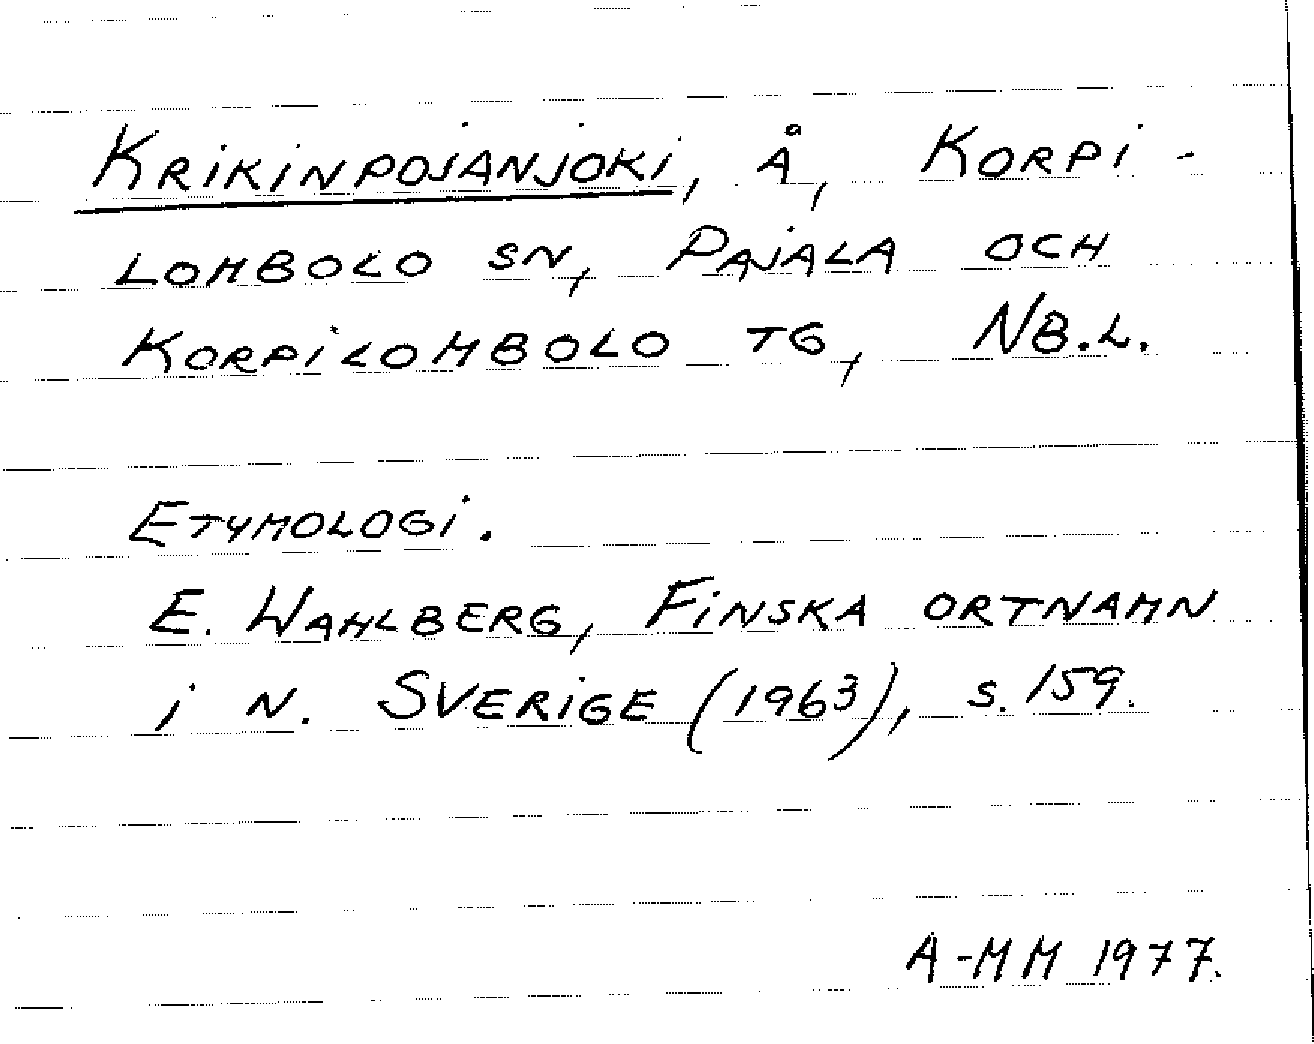 Krikinpojanjoki, å, Korpi-
lombolo sn, Pajala och
Korpilombolo tg, Nb.l.
Etymologi.
E. Wahlberg, Finska ortnamn
i N. Sverige (1963), s. 159.
A-MM 1977.